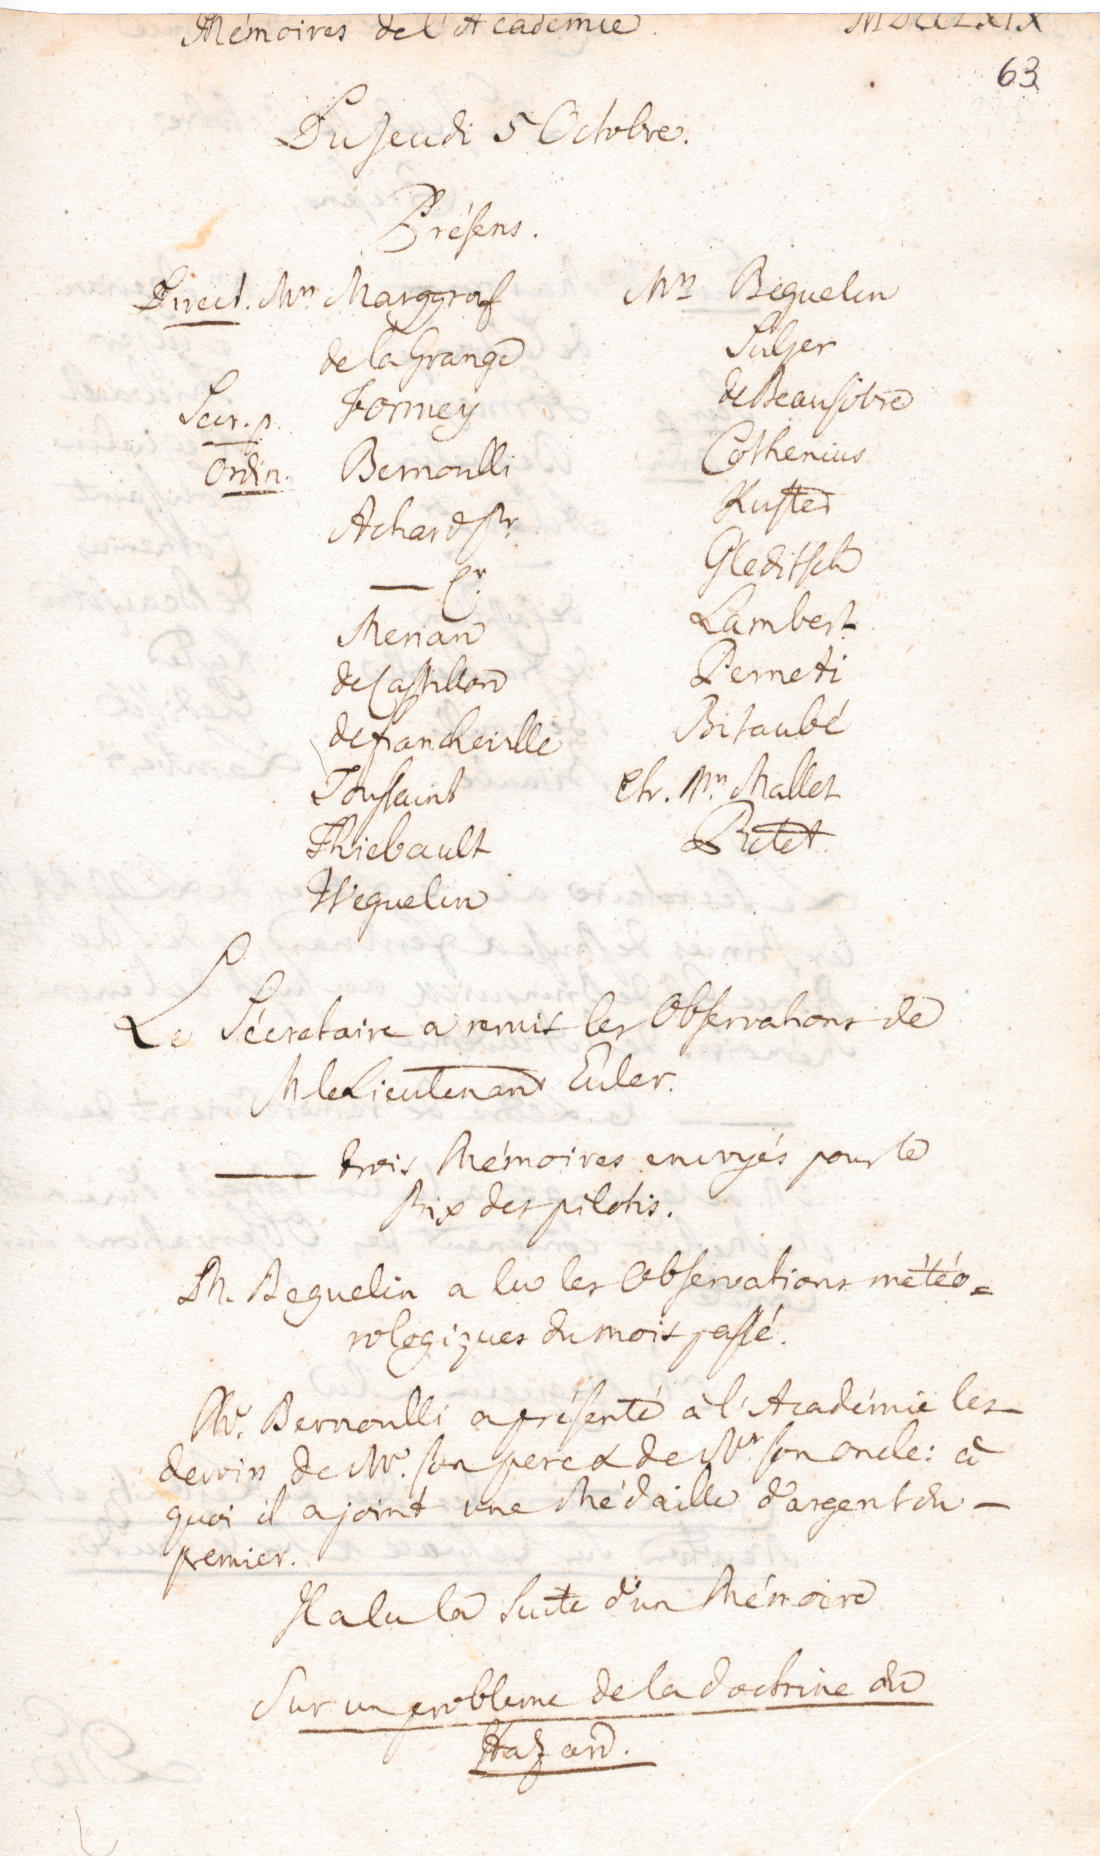 Mémoires de l'Academie. MDCCLXIX
63
Du Jeudi 5 Octobre.
Présens.
Direct. Mrs Marggraf
de la Grange
Secr. p. Formey
Ordin. Bernoulli
Achard Pr.
— Cr.
Merian
de Castillon
de Francheville
Toussaint
Thiebault
Weguelin
Mrs Beguelin
Sulzer
de Beausobre
Cothenius
Kuster
Gleditsch
Lambert
Perneti
Bitaubé
Etr. Mrs Mallet
Pictet.
Le Sécretaire a remis les Observations de
M le Lieutenant Euler.
— trois Mémoires envoyés pour le
Prix des pilotis.
M. Beguelin a lu les Observations météo=
rologiques du mois passé.
Mr. Bernoulli a présenté à l'Académie les
devoirs de Mr. son pere & de Mr son oncle: à
quoi il a joint une Médaille d'argent du
premier.
Il a lu la Suite d'un Mémoire
Sur un probleme de la doctrine du
Hazard.